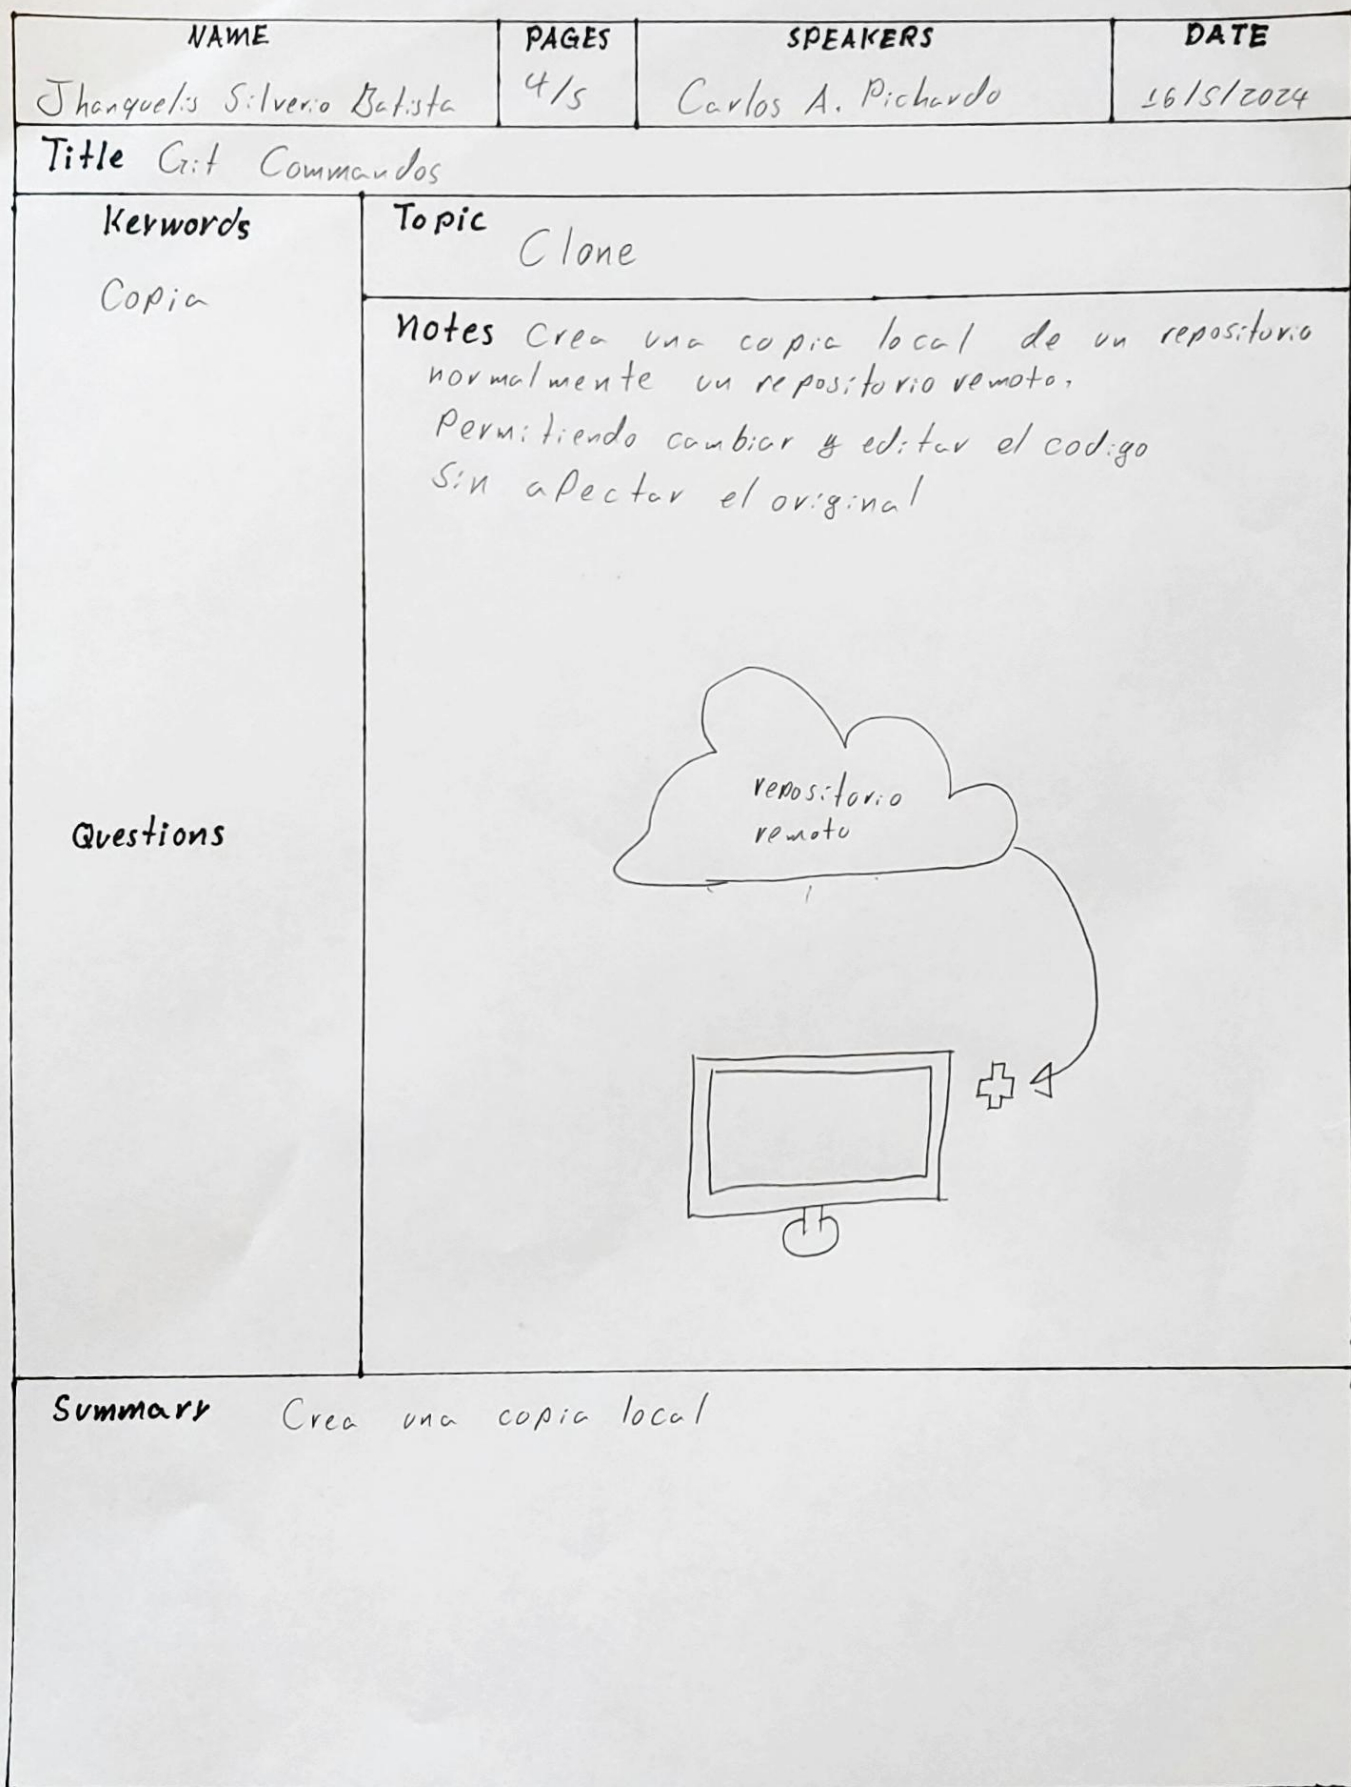 NAME
Jhanquelis Silverio Batista
PAGES
4/5
SPEAKERS
Carlos A. Pichardo
DATE
16/5/2024
Title Git Commandos
Keywords
Copia
Topic
Clone
Notes Crea una copia local de un repositorio
normalmente un repositorio remoto.
Permitiendo cambiar y editar el codigo
Sin afectar el original
repositorio
remoto
Questions
Summary Crea una copia local